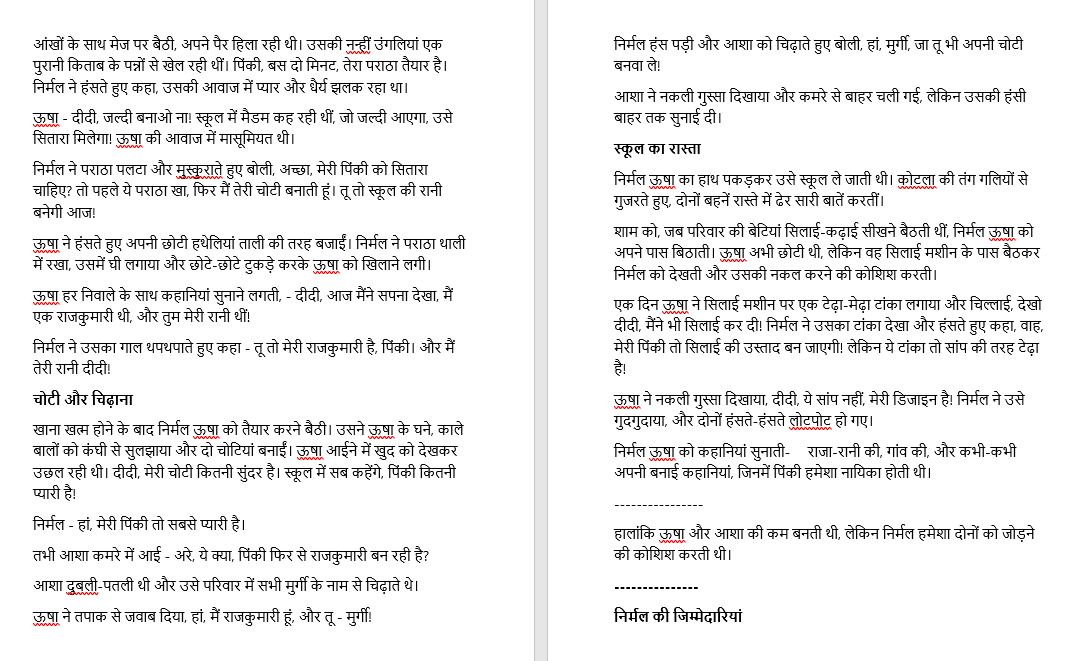 आंखों के साथ मेज पर बैठी, अपने पैर हिला रही थी। उसकी नन्हीं उंगलियां एक
पुरानी किताब के पन्नों से खेल रही थीं। पिंकी, बस दो मिनट, तेरा पराठा तैयार है।
निर्मल ने हंसते हुए कहा, उसकी आवाज में प्यार और धैर्य झलक रहा था।
ऊषा - दीदी, जल्दी बनाओ ना! स्कूल में मैडम कह रही थीं, जो जल्दी आएगा, उसे
सितारा मिलेगा! ऊषा की आवाज में मासूमियत थी।
निर्मल ने पराठा पलटा और मुस्कुराते हुए बोली, अच्छा, मेरी पिंकी को सितारा
चाहिए? तो पहले ये पराठा खा, फिर मैं तेरी चोटी बनाती हूं। तू तो स्कूल की रानी
बनेगी आज!
ऊषा ने हंसते हुए अपनी छोटी हथेलियां ताली की तरह बजाईं। निर्मल ने पराठा थाली
में रखा, उसमें घी लगाया और छोटे-छोटे टुकड़े करके ऊषा को खिलाने लगी।
ऊषा हर निवाले के साथ कहानियां सुनाने लगती, - दीदी, आज मैंने सपना देखा, मैं
एक राजकुमारी थी, और तुम मेरी रानी थीं!
निर्मल ने उसका गाल थपथपाते हुए कहा - तू तो मेरी राजकुमारी है, पिंकी। और मैं
तेरी रानी दीदी!
चोटी और चिढ़ाना
खाना खत्म होने के बाद निर्मल ऊषा को तैयार करने बैठी। उसने ऊषा के घने, काले
बालों को कंघी से सुलझाया और दो चोटियां बनाईं। ऊषा आईने में खुद को देखकर
उछल रही थी। दीदी, मेरी चोटी कितनी सुंदर है। स्कूल में सब कहेंगे, पिंकी कितनी
प्यारी है!
निर्मल - हां, मेरी पिंकी तो सबसे प्यारी है।
तभी आशा कमरे में आई - अरे, ये क्या, पिंकी फिर से राजकुमारी बन रही है?
आशा दुबली-पतली थी और उसे परिवार में सभी मुर्गी के नाम से चिढ़ाते थे।
ऊषा ने तपाक से जवाब दिया, हां, मैं राजकुमारी हूं, और तू - मुर्गी!
निर्मल हंस पड़ी और आशा को चिढ़ाते हुए बोली, हां, मुर्गी, जा तू भी अपनी चोटी
बनवा ले!
आशा ने नकली गुस्सा दिखाया और कमरे से बाहर चली गई, लेकिन उसकी हंसी
बाहर तक सुनाई दी।
स्कूल का रास्ता
निर्मल ऊषा का हाथ पकड़कर उसे स्कूल ले जाती थी। कोटला की तंग गलियों से
गुजरते हुए, दोनों बहनें रास्ते में ढेर सारी बातें करतीं।
शाम को, जब परिवार की बेटियां सिलाई-कढ़ाई सीखने बैठती थीं, निर्मल ऊषा को
अपने पास बिठाती। ऊषा अभी छोटी थी, लेकिन वह सिलाई मशीन के पास बैठकर
निर्मल को देखती और उसकी नकल करने की कोशिश करती।
एक दिन ऊषा ने सिलाई मशीन पर एक टेढ़ा-मेढ़ा टांका लगाया और चिल्लाई, देखो
दीदी, मैंने भी सिलाई कर दी! निर्मल ने उसका टांका देखा और हंसते हुए कहा, वाह,
मेरी पिंकी तो सिलाई की उस्ताद बन जाएगी! लेकिन ये टांका तो सांप की तरह टेढ़ा
है!
ऊषा ने नकली गुस्सा दिखाया, दीदी, ये सांप नहीं, मेरी डिजाइन है! निर्मल ने उसे
गुदगुदाया, और दोनों हंसते-हंसते लोटपोट हो गए।
निर्मल ऊषा को कहानियां सुनाती- राजा-रानी की, गांव की, और कभी-कभी
अपनी बनाई कहानियां, जिनमें पिंकी हमेशा नायिका होती थी।
----------------
हालांकि ऊषा और आशा की कम बनती थी, लेकिन निर्मल हमेशा दोनों को जोड़ने
की कोशिश करती थी।
---------------
निर्मल की जिम्मेदारियां